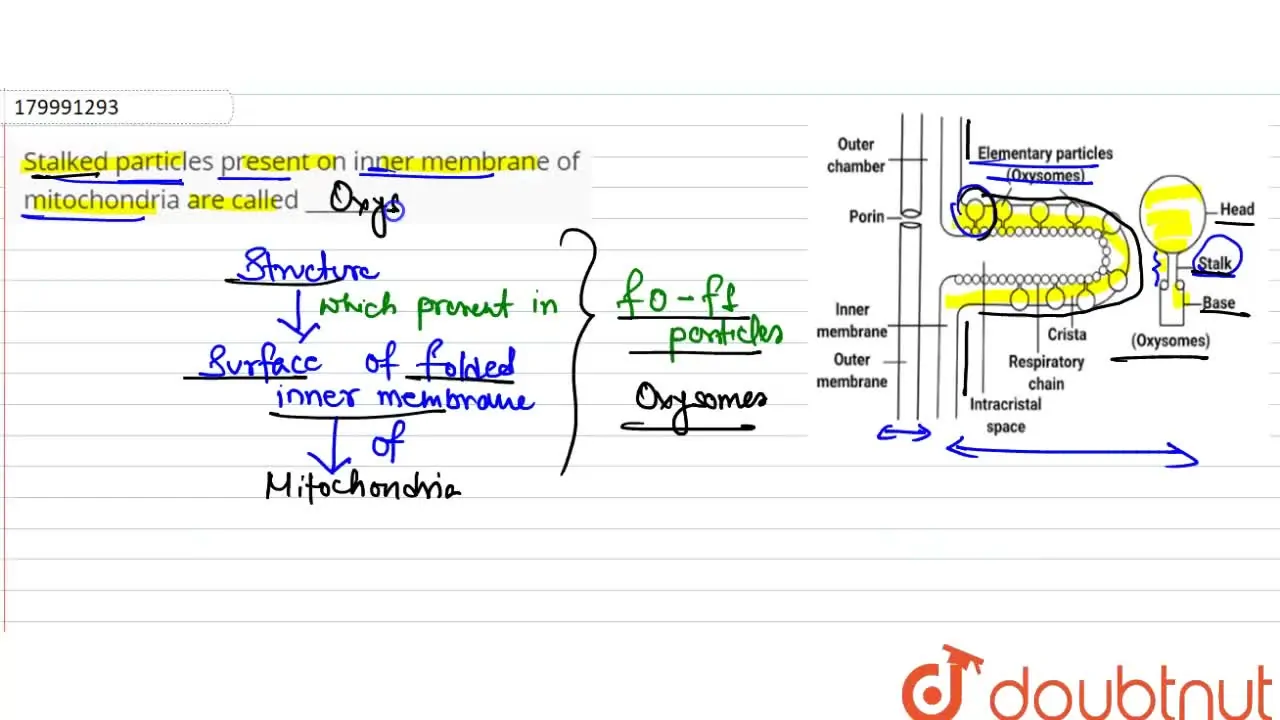 179991293
Stalked particles present on inner membrane of
mitochondria are called ______ Oxys
Structure
which present in
Surface of folded
inner membrane
of
Mitochondria
fo-f1
particles
Oxysomes
Outer
chamber
Porin
Inner
membrane
Outer
membrane
Elementary particles
(Oxysomes)
Crista
Respiratory
chain
Intracristal
space
Head
Stalk
Base
(Oxysomes)
doubtnut